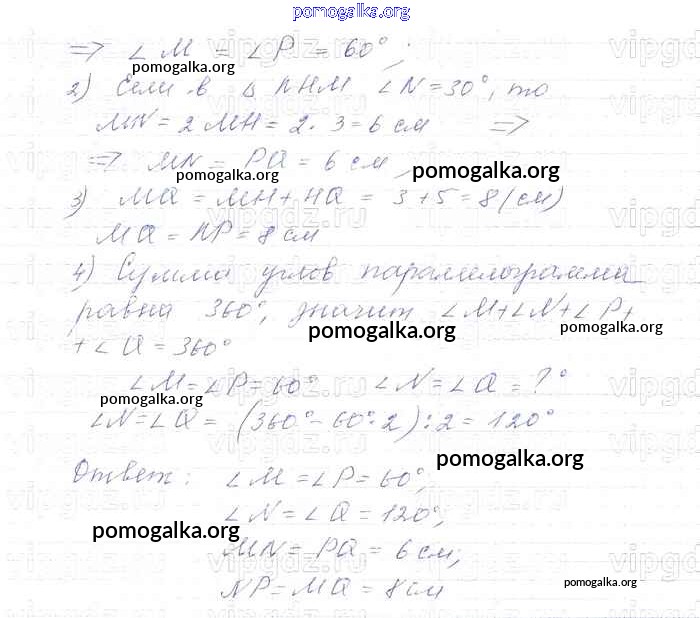 pomogalka.org
=> ∠M = ∠P = 60°;
pomogalka.org
2) Если в △ NHM ∠N = 30°, то
MN = 2 MH = 2 · 3 = 6 см =>
=> MN = PQ = 6 см
pomogalka.org
pomogalka.org
3) MQ = MH + HQ = 3 + 5 = 8 (см)
MQ = NP = 8 см
4) Сумма углов параллелограмма
равна 360°, значит ∠M + ∠N + ∠P +
pomogalka.org
pomogalka.org
+ ∠Q = 360°
∠M = ∠P = 60° ∠N = ∠Q = ?°
pomogalka.org
∠N = ∠Q = (360° - 60° · 2) : 2 = 120°
pomogalka.org
Ответ: ∠M = ∠P = 60°,
∠N = ∠Q = 120°;
pomogalka.org
MN = PQ = 6 см;
NP = MQ = 8 см
pomogalka.org